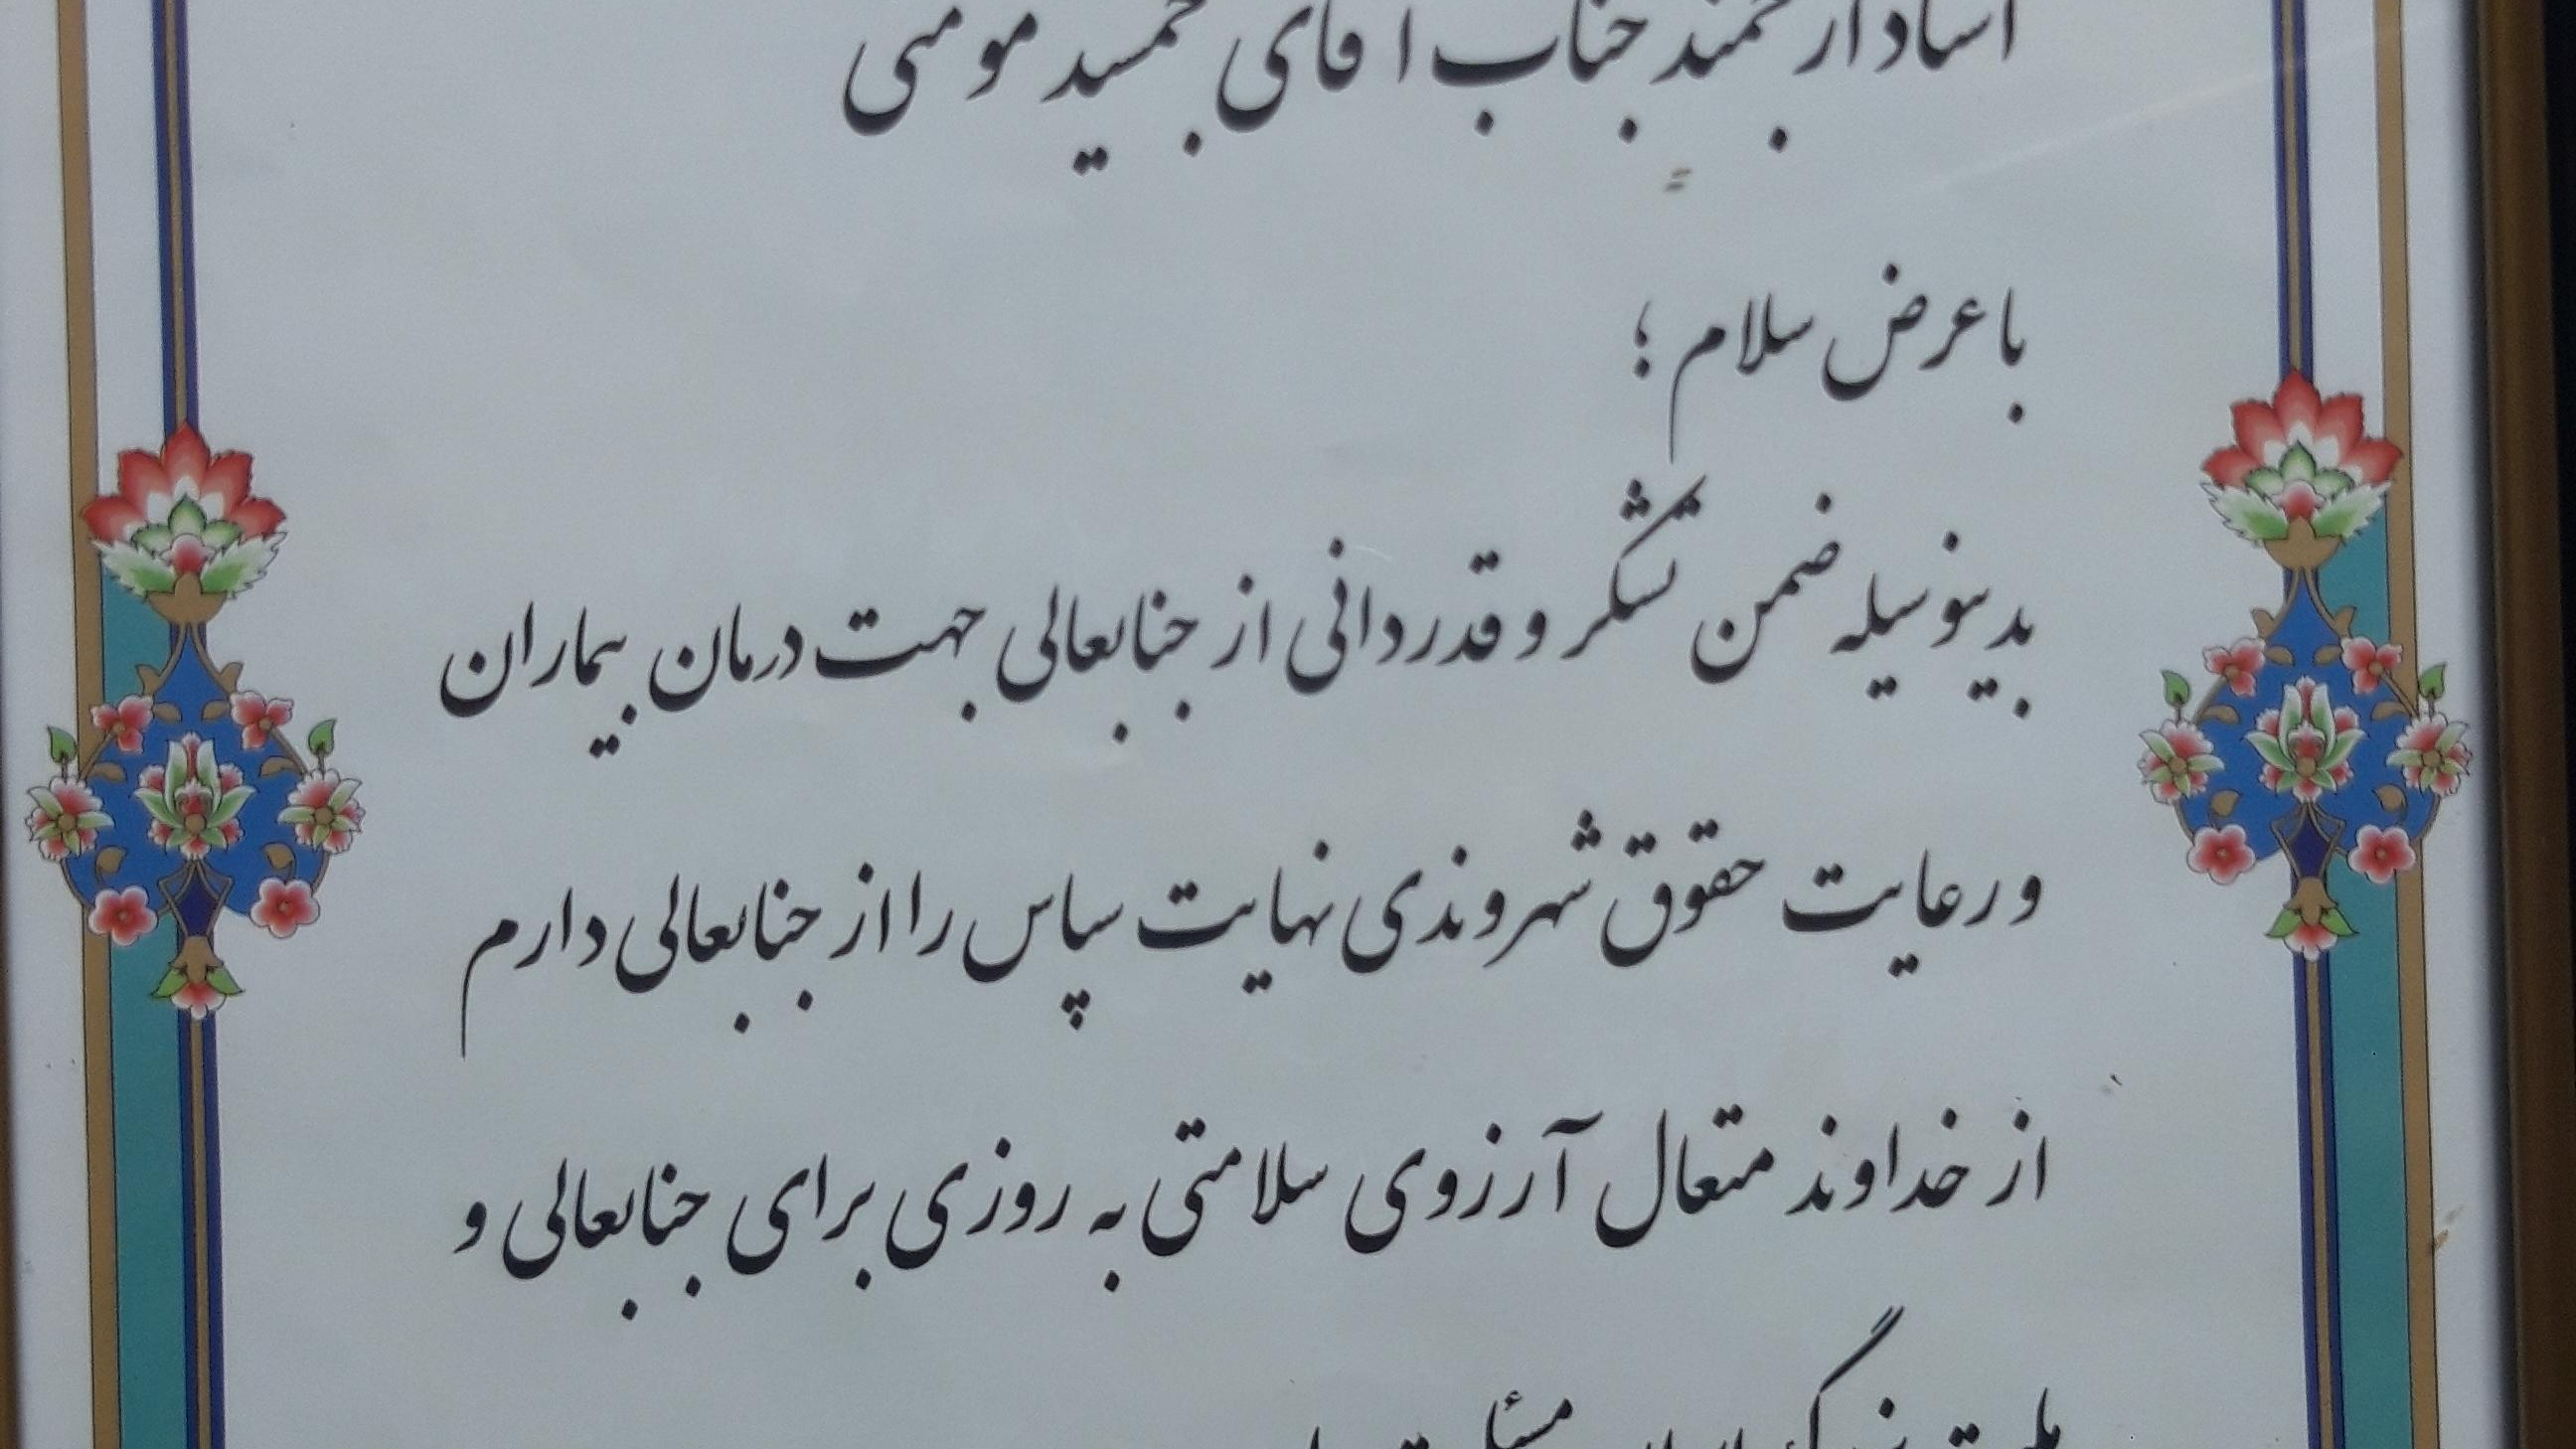 استاد ارجمند جناب آقای جمشید مومنی
با عرض سلام ؛
بدینوسیله ضمن تشکر و قدردانی از جنابعالی جهت درمان بیماران
و رعایت حقوق شهروندی نهایت سپاس را از جنابعالی دارم
از خداوند متعال آرزوی سلامتی به روزی برای جنابعالی و